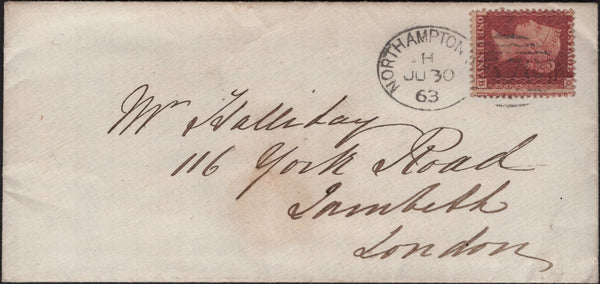 NORTHAMPTON
H
JU 30
63
POSTAGE
ONE PENNY
Mr Halliday
116 York Road
Lambeth
London